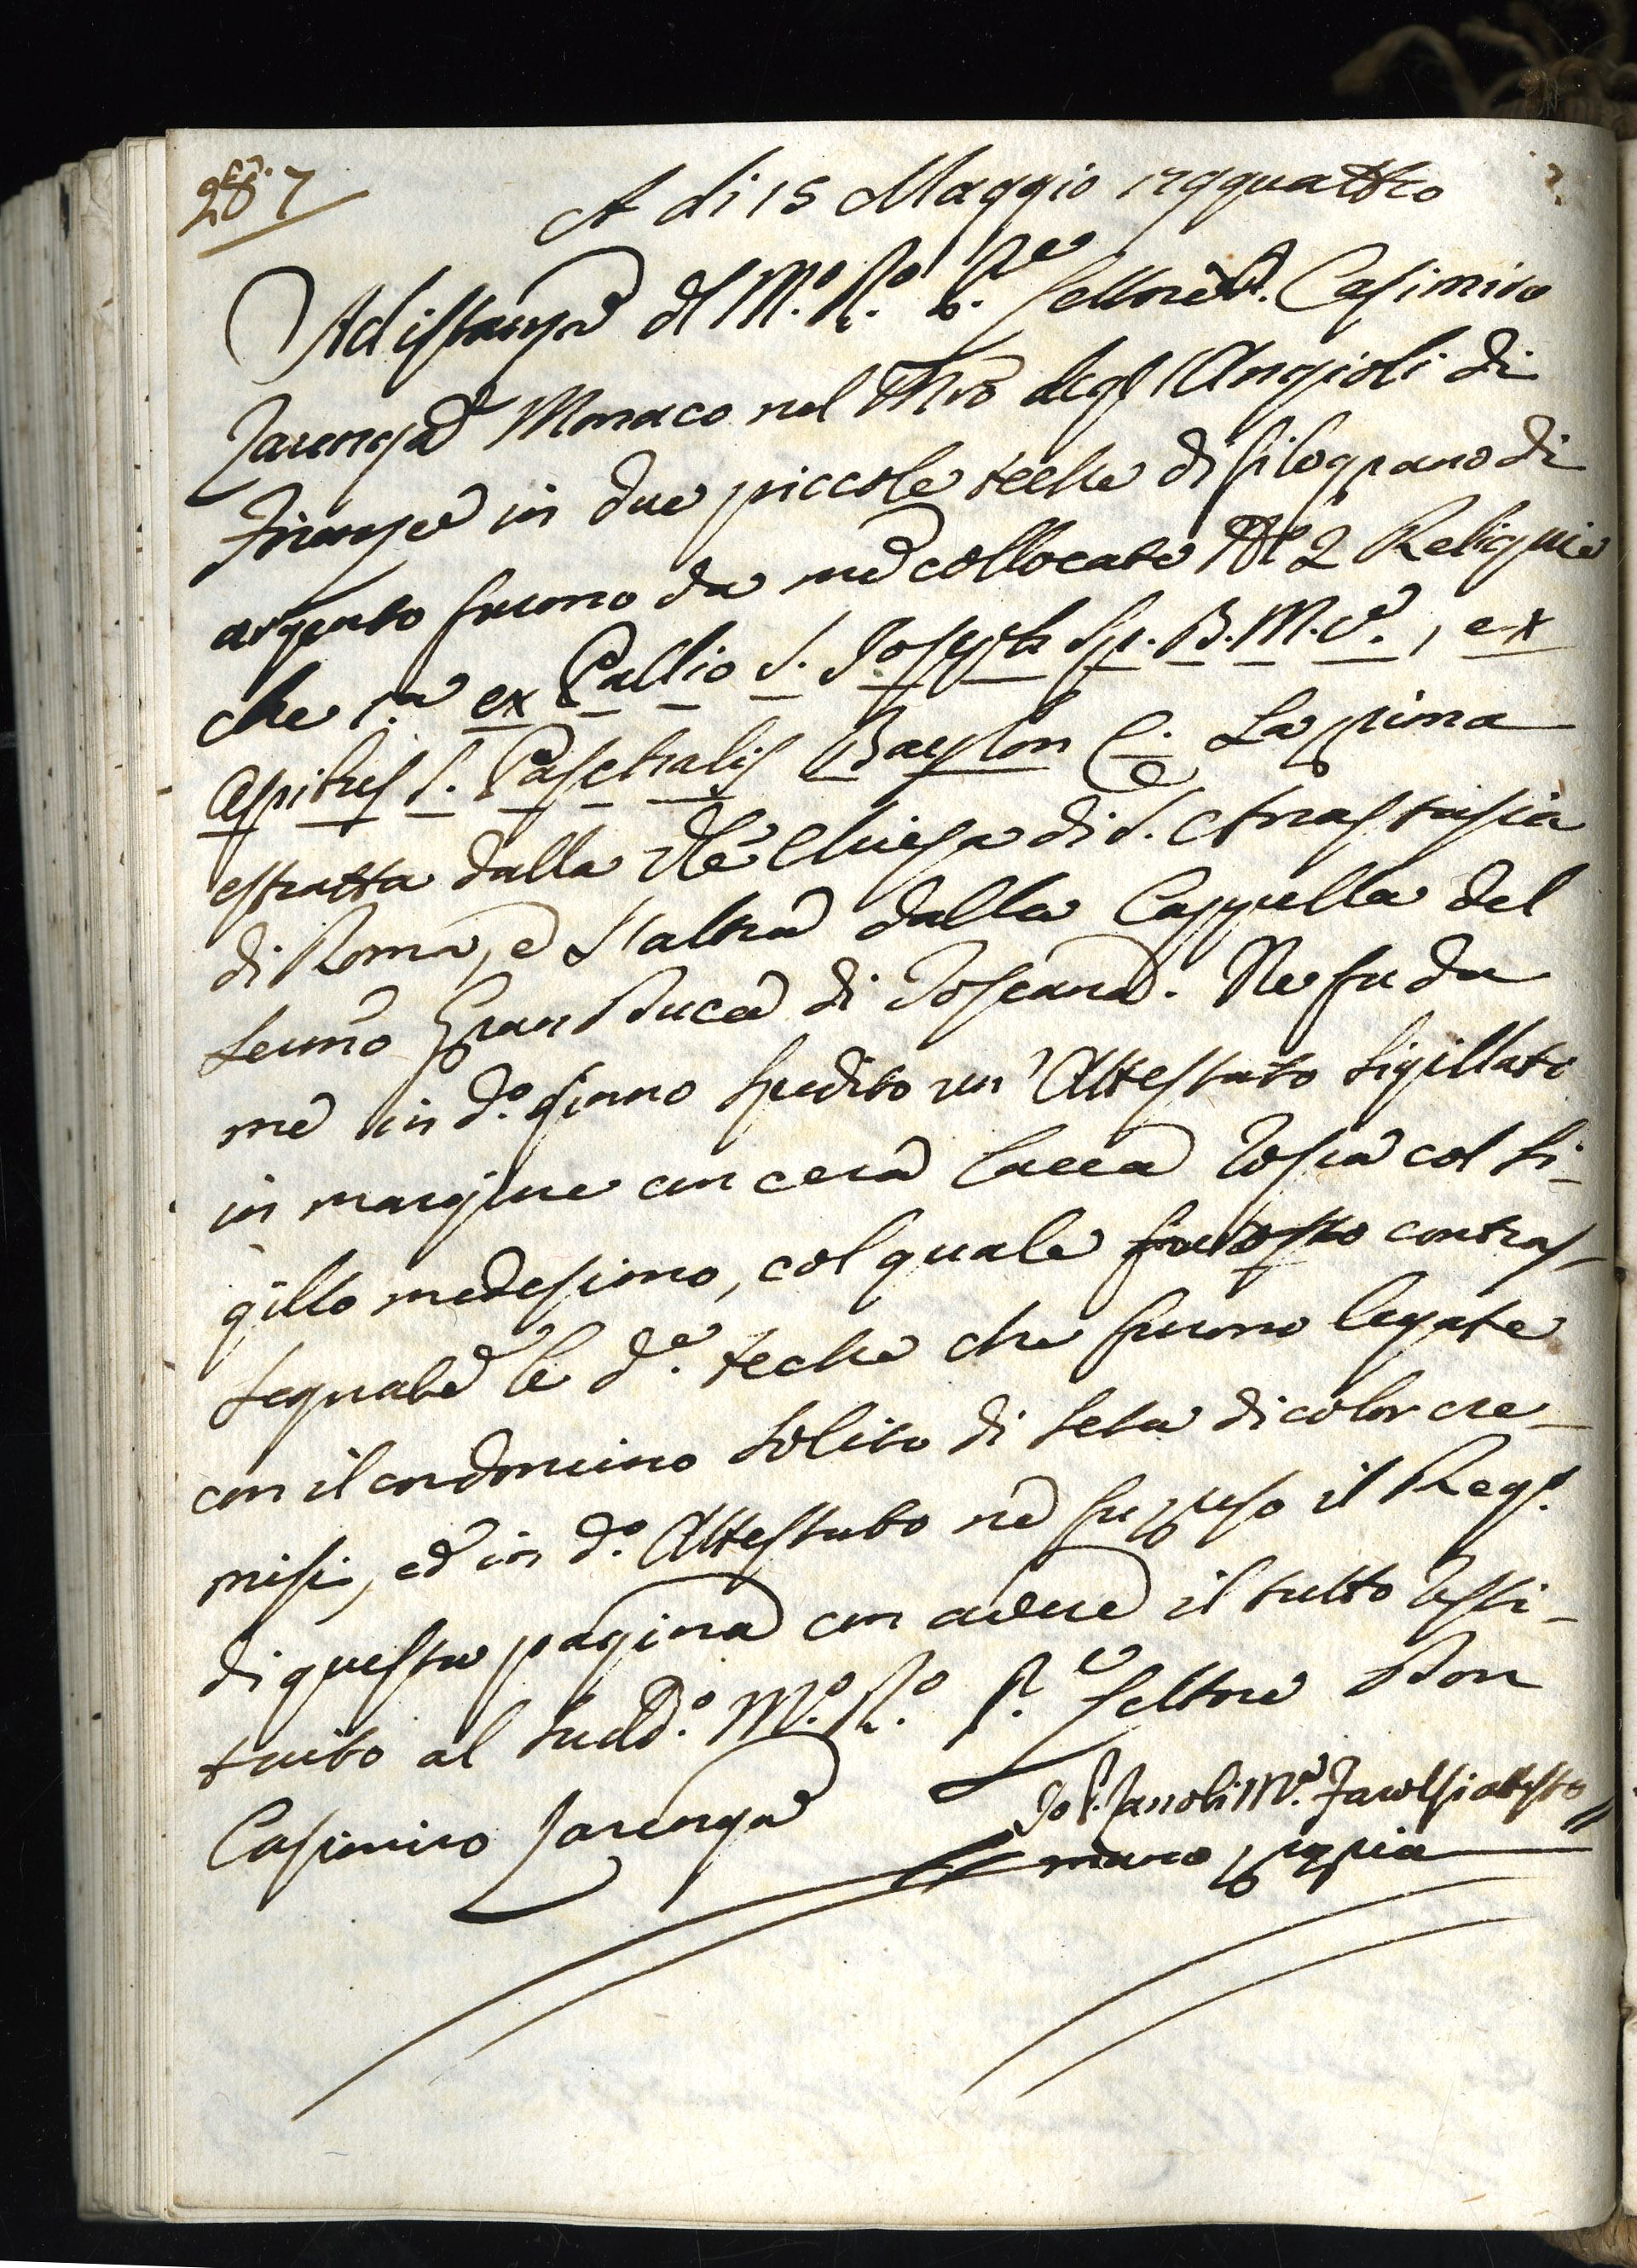 287
A di 15 Maggio 179quattro
Ad istanza dl M.o R.o P.re Lettore D. Casimiro
Monaco nel Mro degl'Angioli di
Firenze in due piccole teche di filograno di
argento furono da me collocate 2 Reliquie
che 1.a ex Pallio S. Joseph Sp. B.M.V., ex
S. Paschalis Baylon C. La prima
estratta dalla Chiesa di S. Anastasia
di Roma, e l'altra dalla Cappella del
Sermo Gran Duca di Toscana. Ne fu da
me in d.o giorno spedito un'Attestato sigillato
in margine con cera lacca rossa col si-
gillo medesimo, col quale contras-
segnate le d.e teche che furono legate
con il cordoncino solito di seta di color cre-
misi, ed in d.o Attestato ne fu preso il Reg.o
di questa pagina con avere il tutto resti-
tuito al sudd.o M.o R.o P.e Lettore Don
Casimiro
Io P. M.a attesto
mano propria